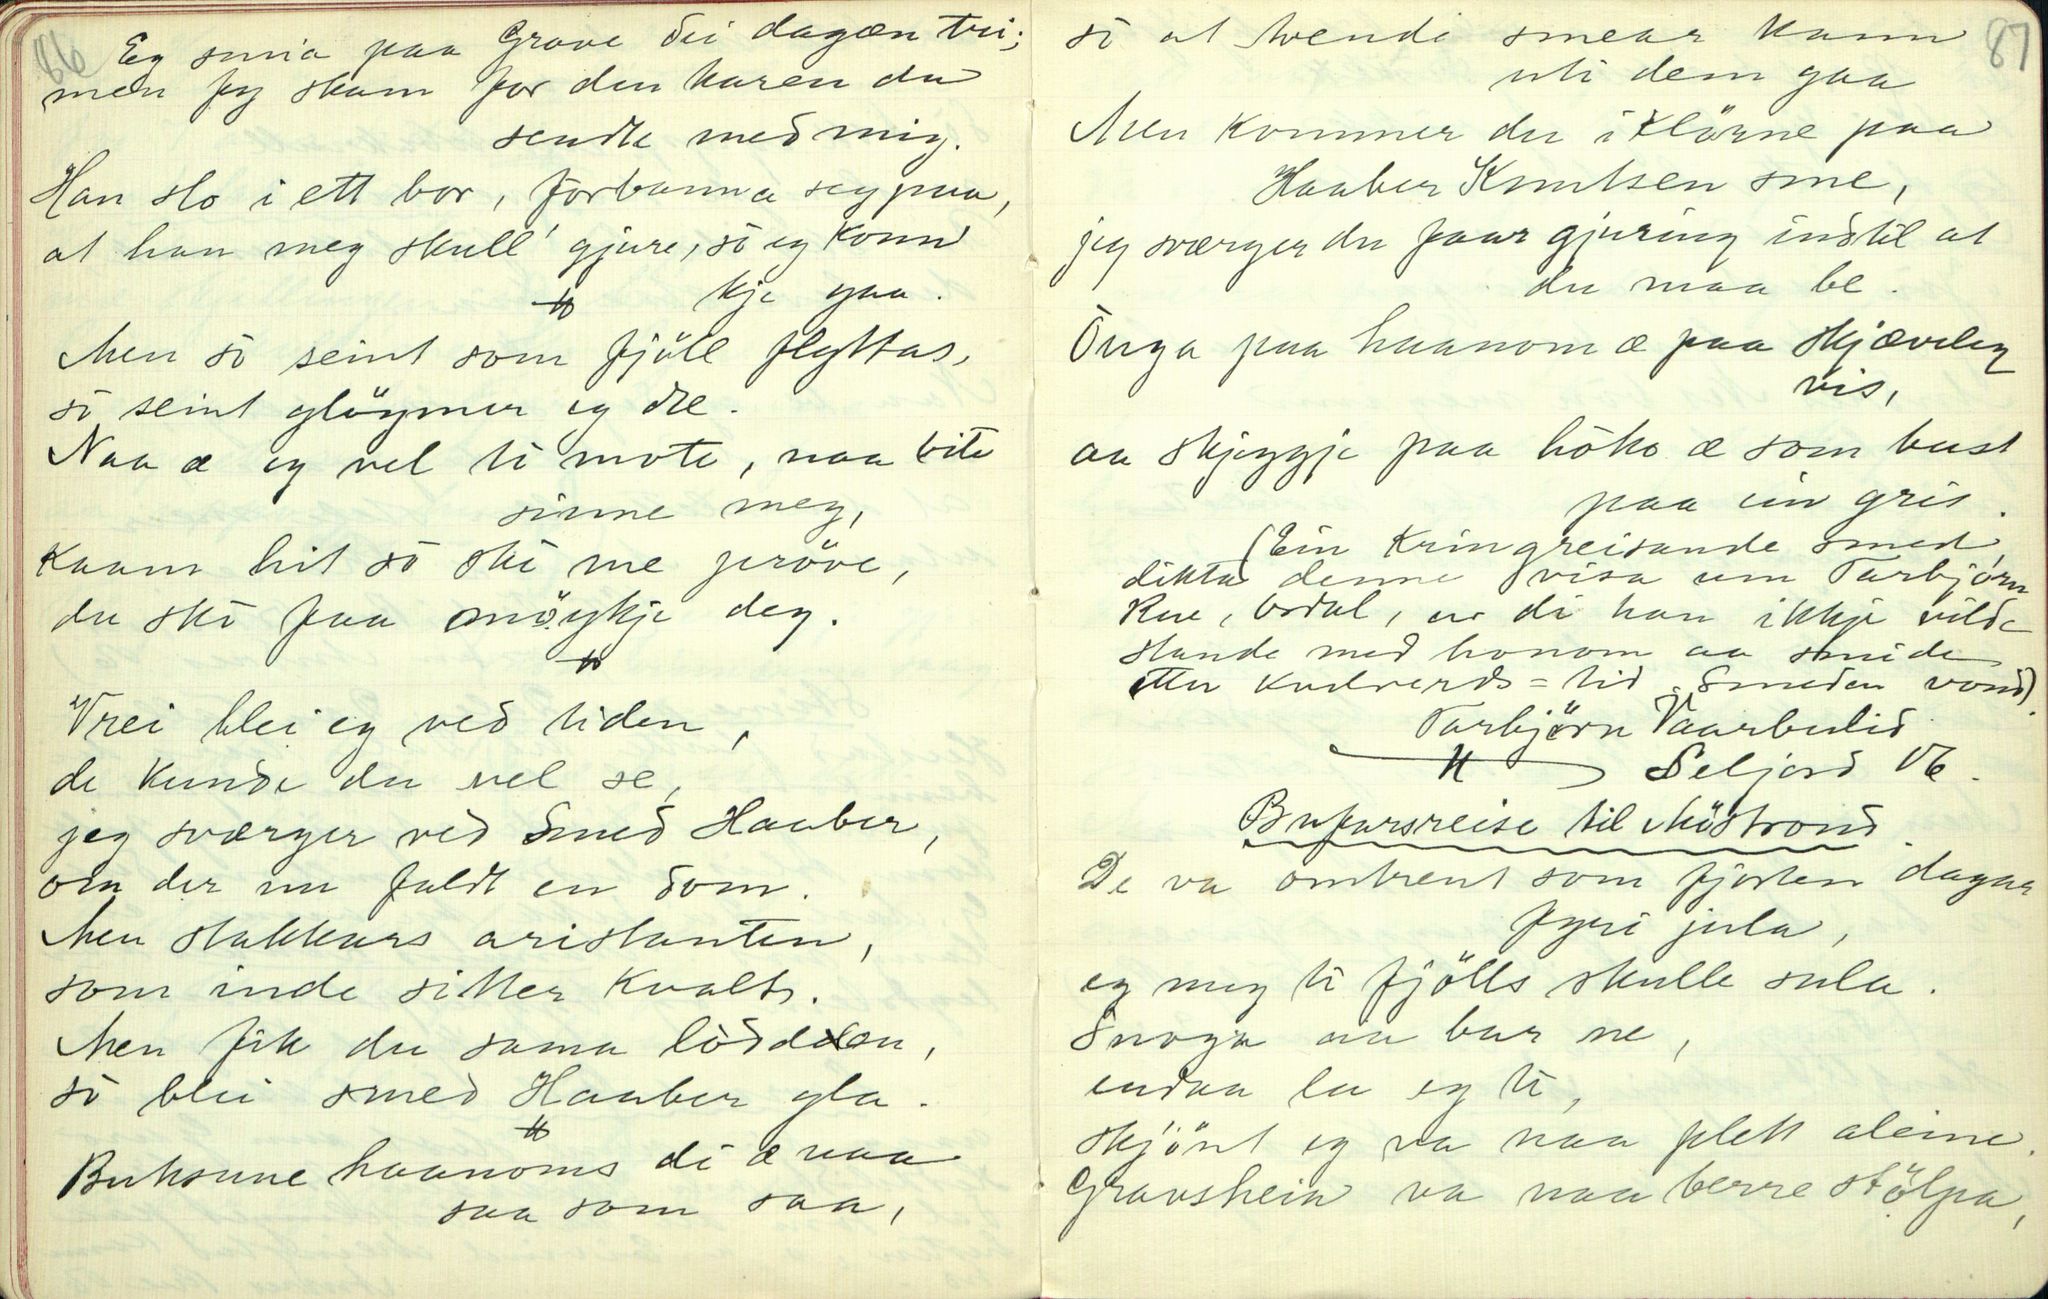 86
Eg smia paa Grave dei dagæn tri;
men fy skam for den karen du
sendte med mig.
Han slo i ett bor, forbanna seg paa,
at han meg skull' gjure, so eg konn
kje gaa.
Men so seint som fjöll flyttas,
so seint glöymer eg de.
Naa æ eg vel ti mote, naa bite
sinne meg,
Kaam hit so sko me pröve,
du sko faa möykje deg.
Vrei blei eg ved tiden,
de kunde du vel se,
jeg sværger ved Smed Haaber,
om der nu faldt en dom.
Men stakkars aristanten,
som inde sitter kvalt.
Men fik du sama lödden,
so blei smed Haaber gla.
Buksune haanoms di æ naa
saa som saa,
87
so at tvendi smear kann
uti dem gaa
Men kommer du i klörne paa
Haaber Knutsen sme,
jeg sværger du faar gjuring indtil at
du maa be.
Önga paa haanom æ paa skjæveleg
vis,
aa skjeggje paa höko æ som bust
paa ein gris.
(Ein kringreisande smed,
dikta denne visa um Tarbjörn
Rue, Bødal, av di han ikkje vilde
stande med honom aa smide
etter kveldverds=tid. Smeden vond).
Tarbjörn Vaarbulid
Seljord V6.
Bufarsreise til Möstrond.
De va omtrent som fjorten dagar
fyri jula,
eg meg ti fjölls skulle sula.
Snoga aa bar ne,
endaa la eg ti,
skjönt eg va naa plett aleine.
Gravshein va naa berre stölpa,